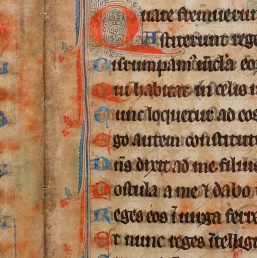 Quare fremuerun
Astiterunt rege
Dirumpam᷒ uincla eo
Qui habitat in celis i
Tunc loquetur ad eos
Ego autem constitut
Dn̄s dixit ad me filius
Postula a me ⁊ dabo
Reges eos ī uirga ferre
Et nunc reges ītellig